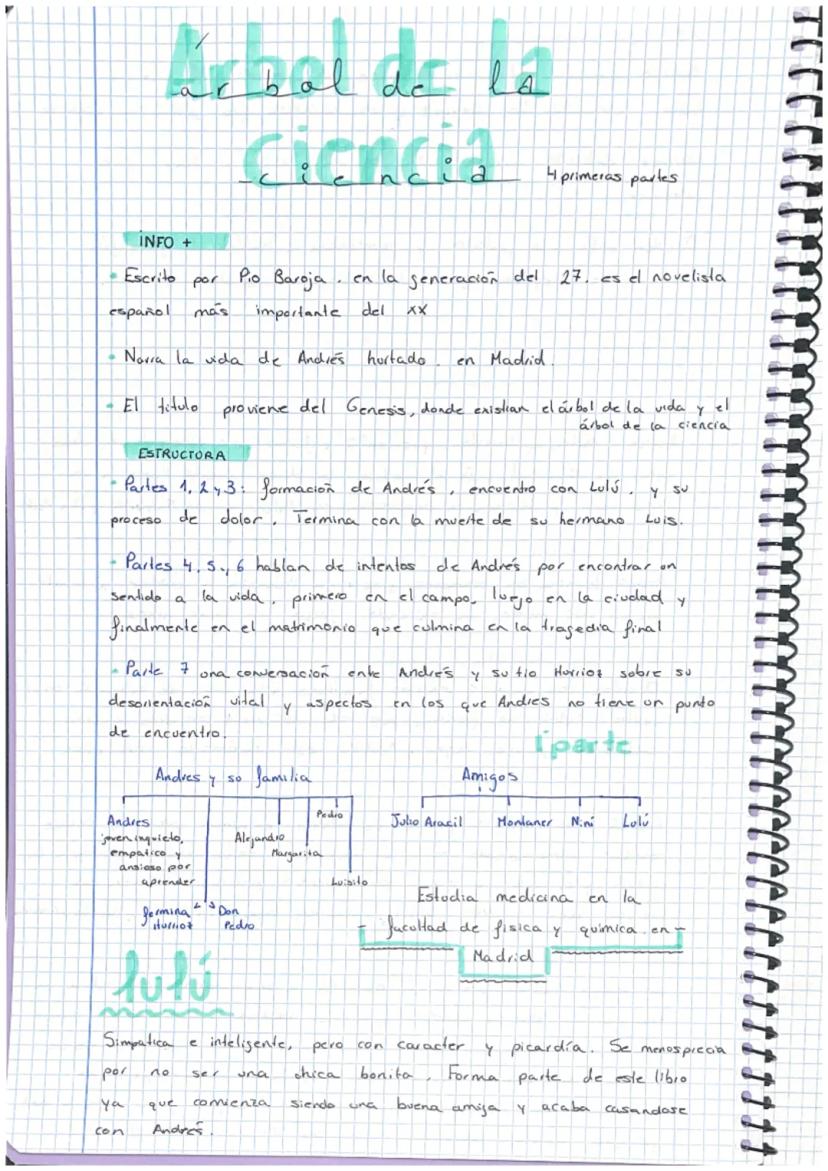 Árbol de la
árbol de la
ciencia
ciencia
4 primeras partes
INFO +
- Escrito por Pio Baroja. en la generación del 27. es el novelista
español más importante del XX
- Narra la vida de Andrés hurtado. en Madrid.
- El titulo proviene del Genesis, donde existian el árbol de la vida y el
árbol de la ciencia
ESTRUCTURA
- Partes 1, 2 y 3: formación de Andrés, encuentro con Lulú, y su
proceso de dolor. Termina con la muerte de su hermano Luis.
- Partes 4, 5, 6 hablan de intentos de Andrés por encontrar un
sentido a la vida, primero en el campo, luego en la ciudad y
finalmente en el matrimonio que culmina en la tragedia final
- Parte 7 una conversación ente Andrés y su tio Hurrioz sobre su
desorientación vital y aspectos en los que Andres no tiene un punto
de encuentro.
1 parte
Andres y so familia
Amigos
Andres
joven inquieto,
empatico y
ansioso por
aprender
Alejandro
Margarita
Pedro
Luisito
fermina
Iturrioz
Don
Pedro
Julio Aracil Montaner Nini Lulú
Estudia medicina en la
facultad de fisica y quimica. en
Madrid
lulú
Simpatica e inteligente, pero con caracter y picardía. Se menosprecia
por no ser una chica bonita. Forma parte de este libro
ya que comienza siendo una buena amiga y acaba casandose
con Andrés.